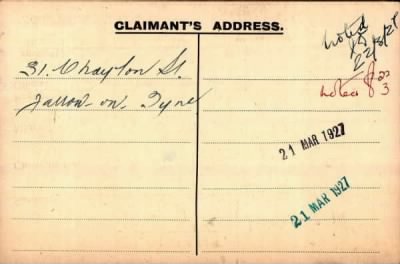 CLAIMANT'S ADDRESS.
31. Chayton St.
Jarrow-on-Tyne
noted
22/3/27
noted
22
3
21 MAR 1927
21 MAR 1927